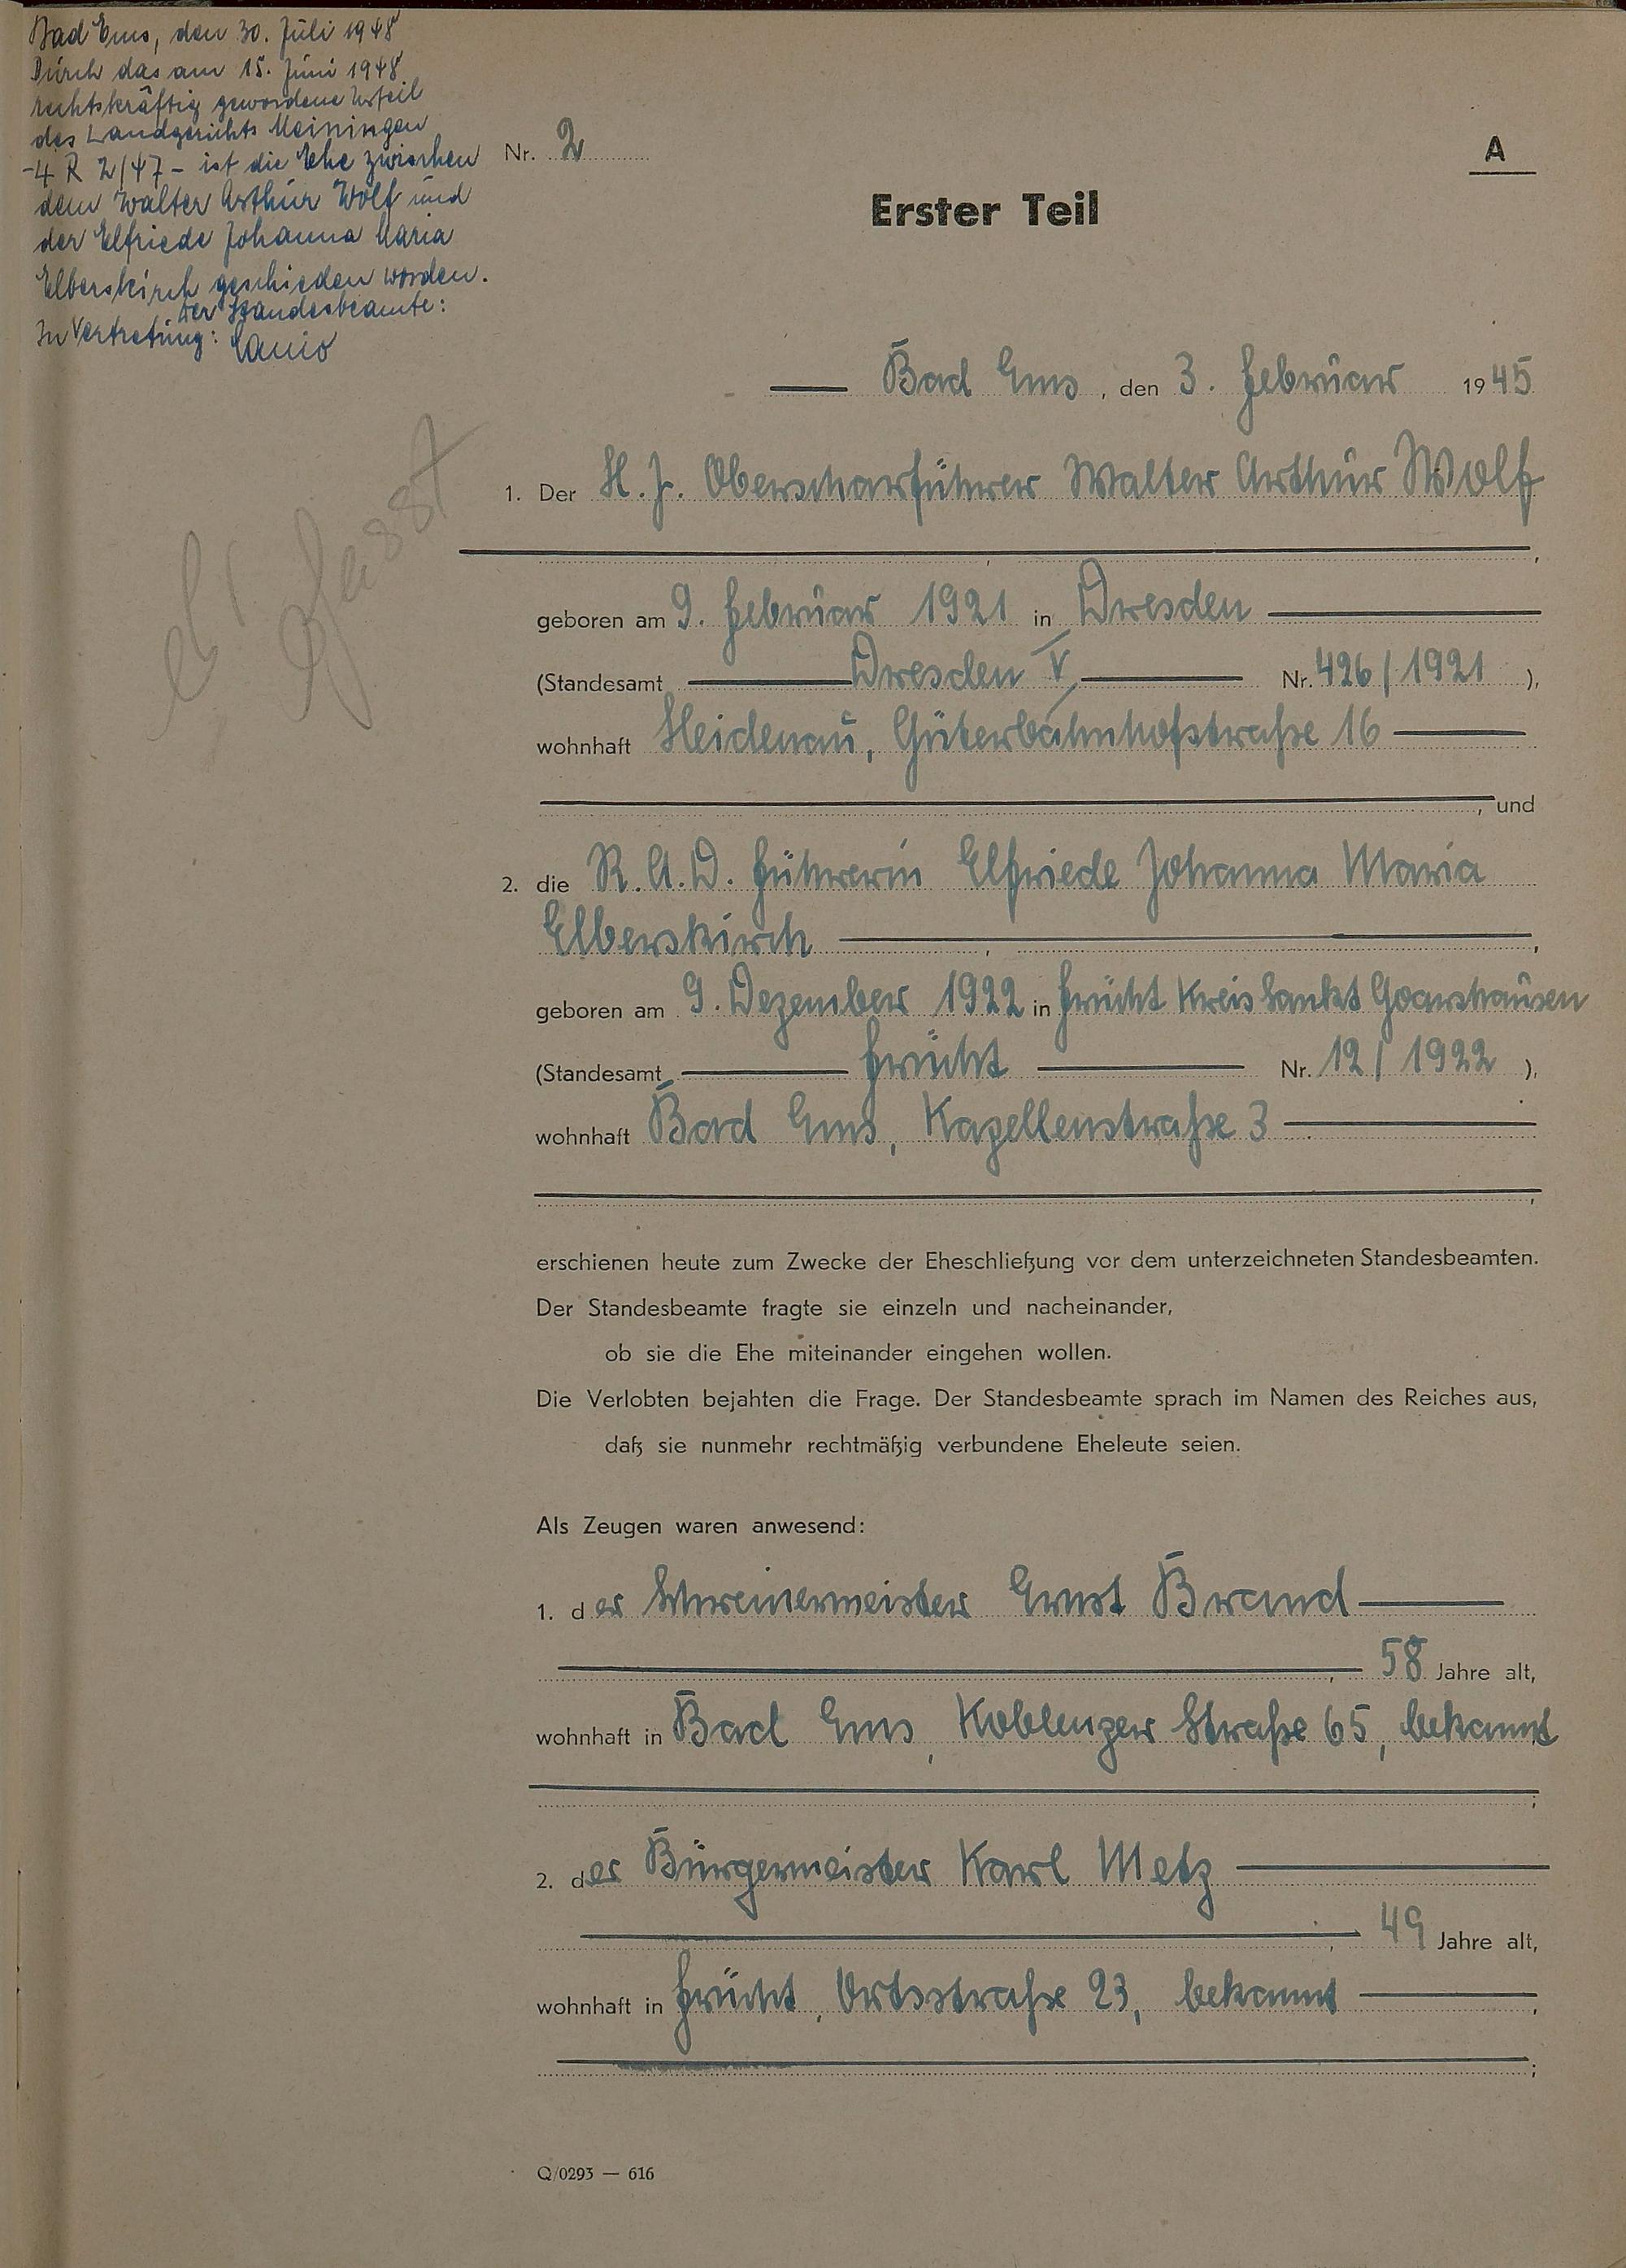 Bad Ems, den 30. Juli 1948
Durch das am 15. Juni 1948
rechtskräftig gewordene Urteil
des Landgerichts Meiningen
-4 R 2/47- ist die Ehe zwischen
dem Walter Arthur Wolf und
der Elfriede Johanna Maria
Elberskirch geschieden worden.
Der Standesbeamte:
In Vertretung:
Nr. 2
A
Erster Teil
Bad Ems, den 3. Februar 1945
1. Der H.J. Oberscharführer Walter Arthur Wolf
geboren am 9. Februar 1921 in Dresden
(Standesamt Dresden V Nr. 426/1921),
wohnhaft Heidenau, Güterbahnhofstraße 16
, und
2. die R.A.D. Führerin Elfriede Johanna Maria
Elberskirch,
geboren am 9. Dezember 1922 in Frücht Kreis Sankt Goarshausen
(Standesamt Frücht Nr. 12/1922),
wohnhaft Bad Ems, Kapellenstraße 3
erschienen heute zum Zwecke der Eheschließung vor dem unterzeichneten Standesbeamten.
Der Standesbeamte fragte sie einzeln und nacheinander,
ob sie die Ehe miteinander eingehen wollen.
Die Verlobten bejahten die Frage. Der Standesbeamte sprach im Namen des Reiches aus,
daß sie nunmehr rechtmäßig verbundene Eheleute seien.
Als Zeugen waren anwesend:
1. der Schreinermeister Ernst Brand
58 Jahre alt,
wohnhaft in Bad Ems, Koblenzer Straße 65, bekannt
2. der Bürgermeister Karl Metz
49 Jahre alt,
wohnhaft in Frücht, Ortsstraße 23, bekannt
Q/0293 — 616